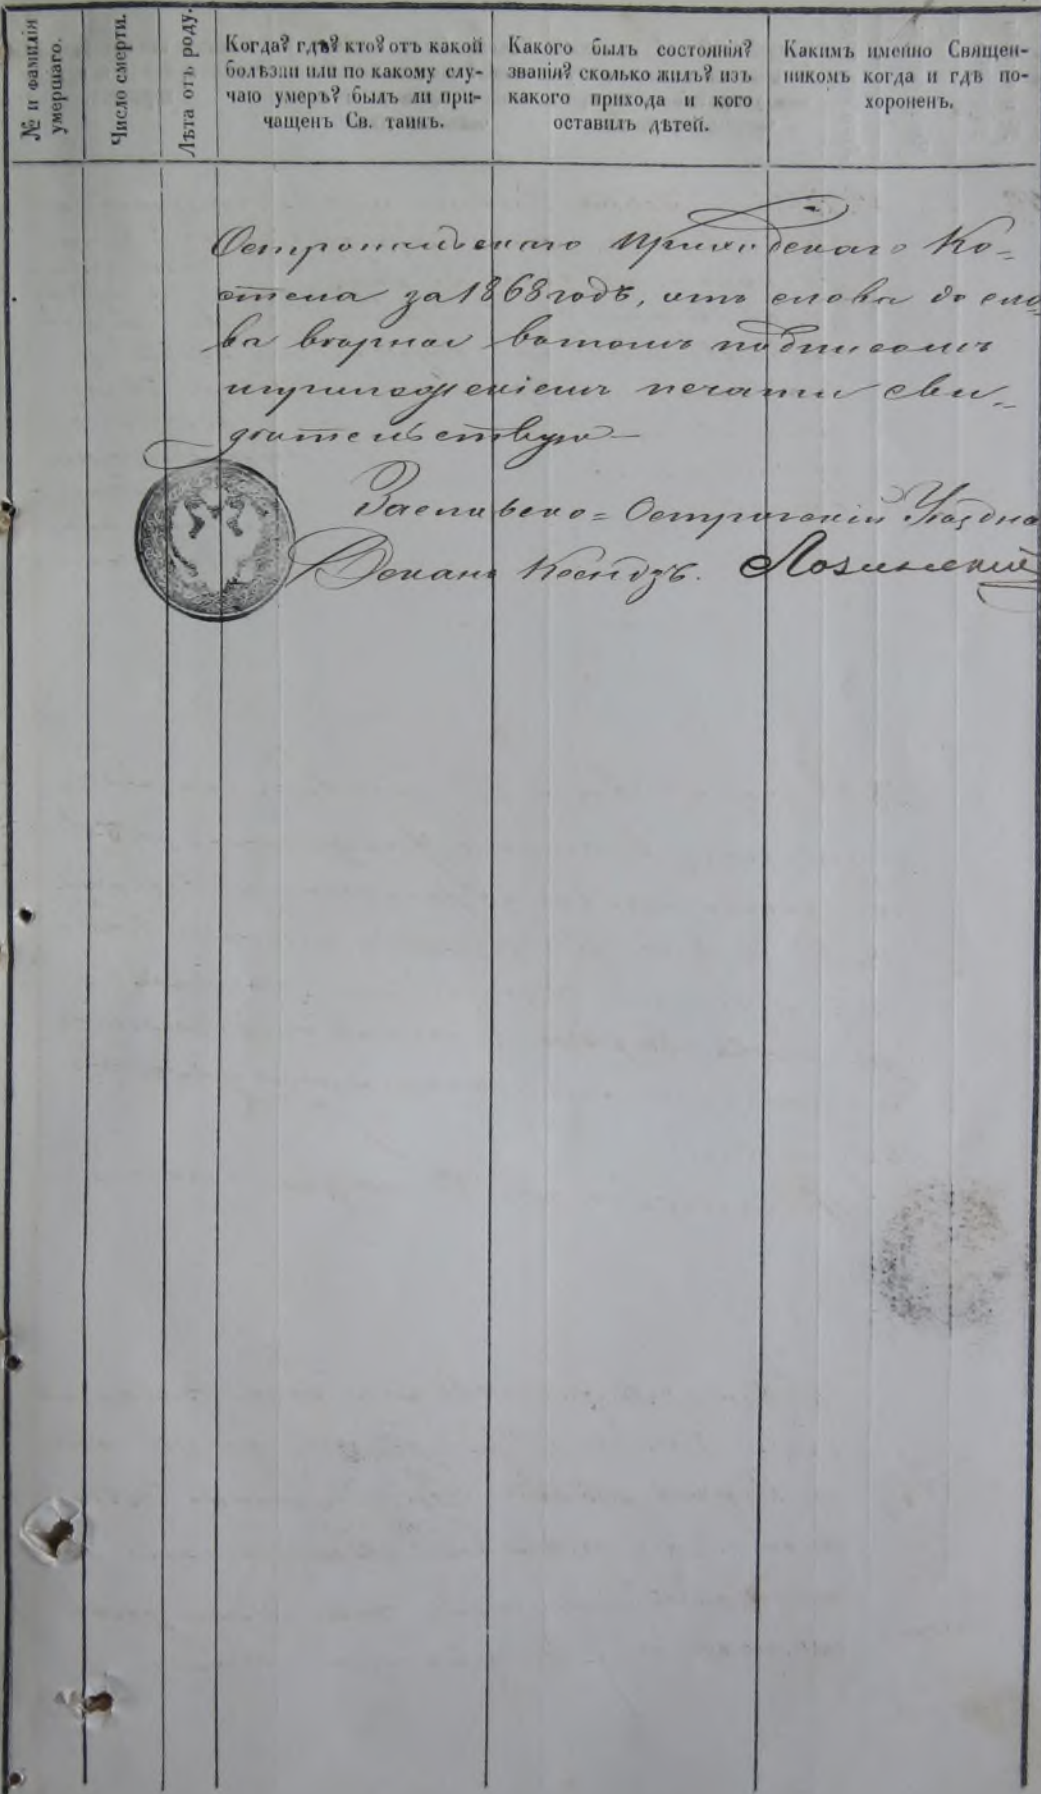 № и фамилія
умершаго.
Число смерти.
Лѣта отъ роду.
Когда? гдѣ? кто? отъ какой
болѣзни или по какому слу-
чаю умеръ? былъ ли при-
чащенъ Св. таинъ.
Какого былъ состоянія?
званія? сколько жилъ? изъ
какого прихода и кого
оставилъ дѣтей.
Какимъ именно Священ-
никомъ когда и гдѣ по-
хороненъ.
Остропольскаго Приходскаго Ко-
стела за 1868 годъ, отъ слова до сло-
ва вѣрна въ томъ подписомъ
и приложеніемъ печати сви-
дѣтельствую —
Заславско = Острогскій
Деканъ Ксендзъ. Лозинский